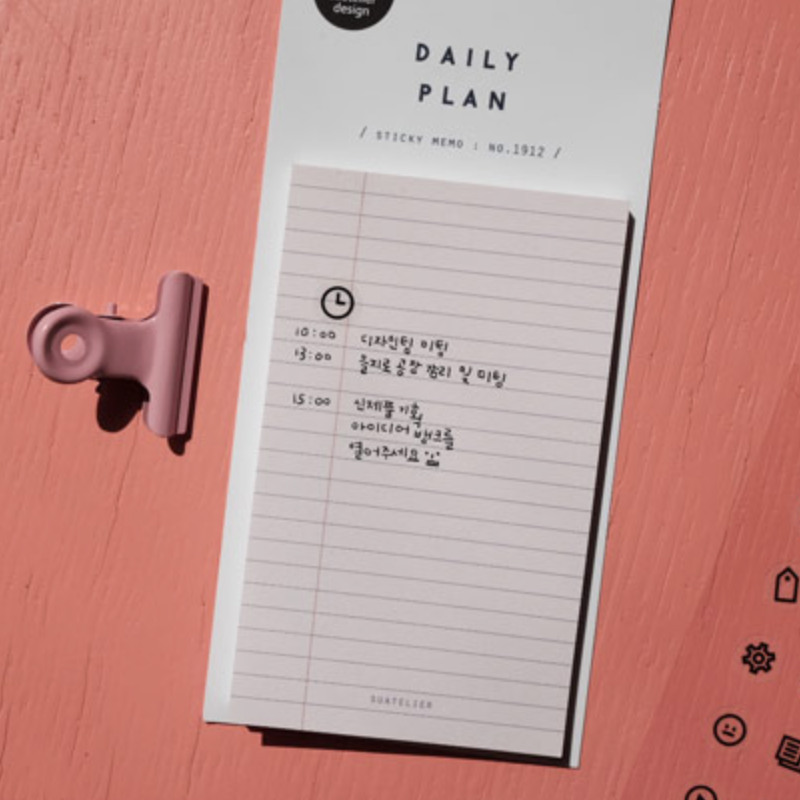 design
DAILY
PLAN
/ STICKY MEMO : NO.1912 /
10:00 디자인팀 미팅
13:00 을지로 공장 감리 및 미팅
15:00 신제품 기획
아이디어 뱅크를
열어주세요
SUATELIER